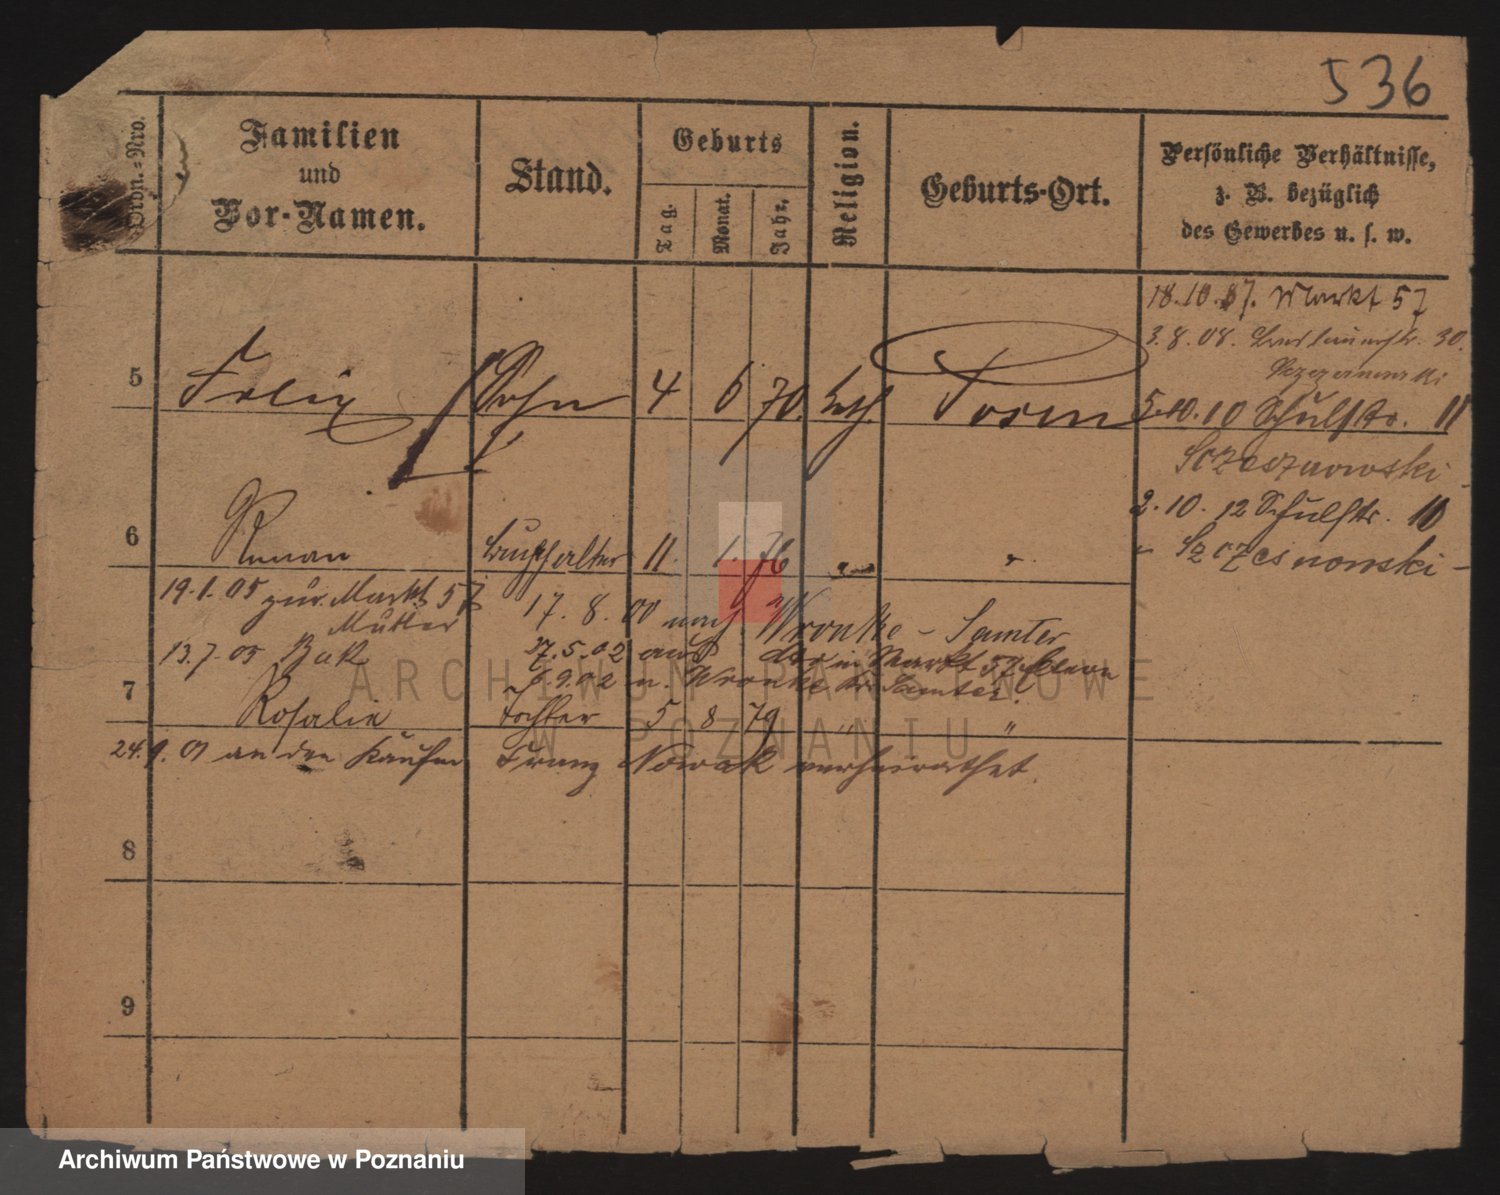 536
Ordn.-Nro.
Familien
und
Vor-Namen.
Stand.
Geburts
Tag.
Monat.
Jahr.
Religion.
Geburts-Ort.
Persönliche Verhältnisse,
z. B. bezüglich
des Gewerbes u. s. w.
18.10. 07. Markt 57
3.8.08. 30.
5 Felix Sohn 4 6 70. kath. Posen
5.10.10 Schulstr. 11
Sczesznowski
2.10.12 Schulstr. 10
Szczesnowski
6 Roman Buchhalter 11. 1. 76
19.1.05 zur Markt 57
Mutter
17. 8. 00 nach Wronke - Samter
13.7.05 Buk
27.5.02 aus dto in Markt 57
6.9.02 n. Wronke Kr. Samter
7 Rosalie Tochter 5 8 79 " "
24.9.01 an den Kaufm Franz Nowak verheirathet.
8
9
ARCHIWUM PAŃSTWOWE
W POZNANIU
Archiwum Państwowe w Poznaniu